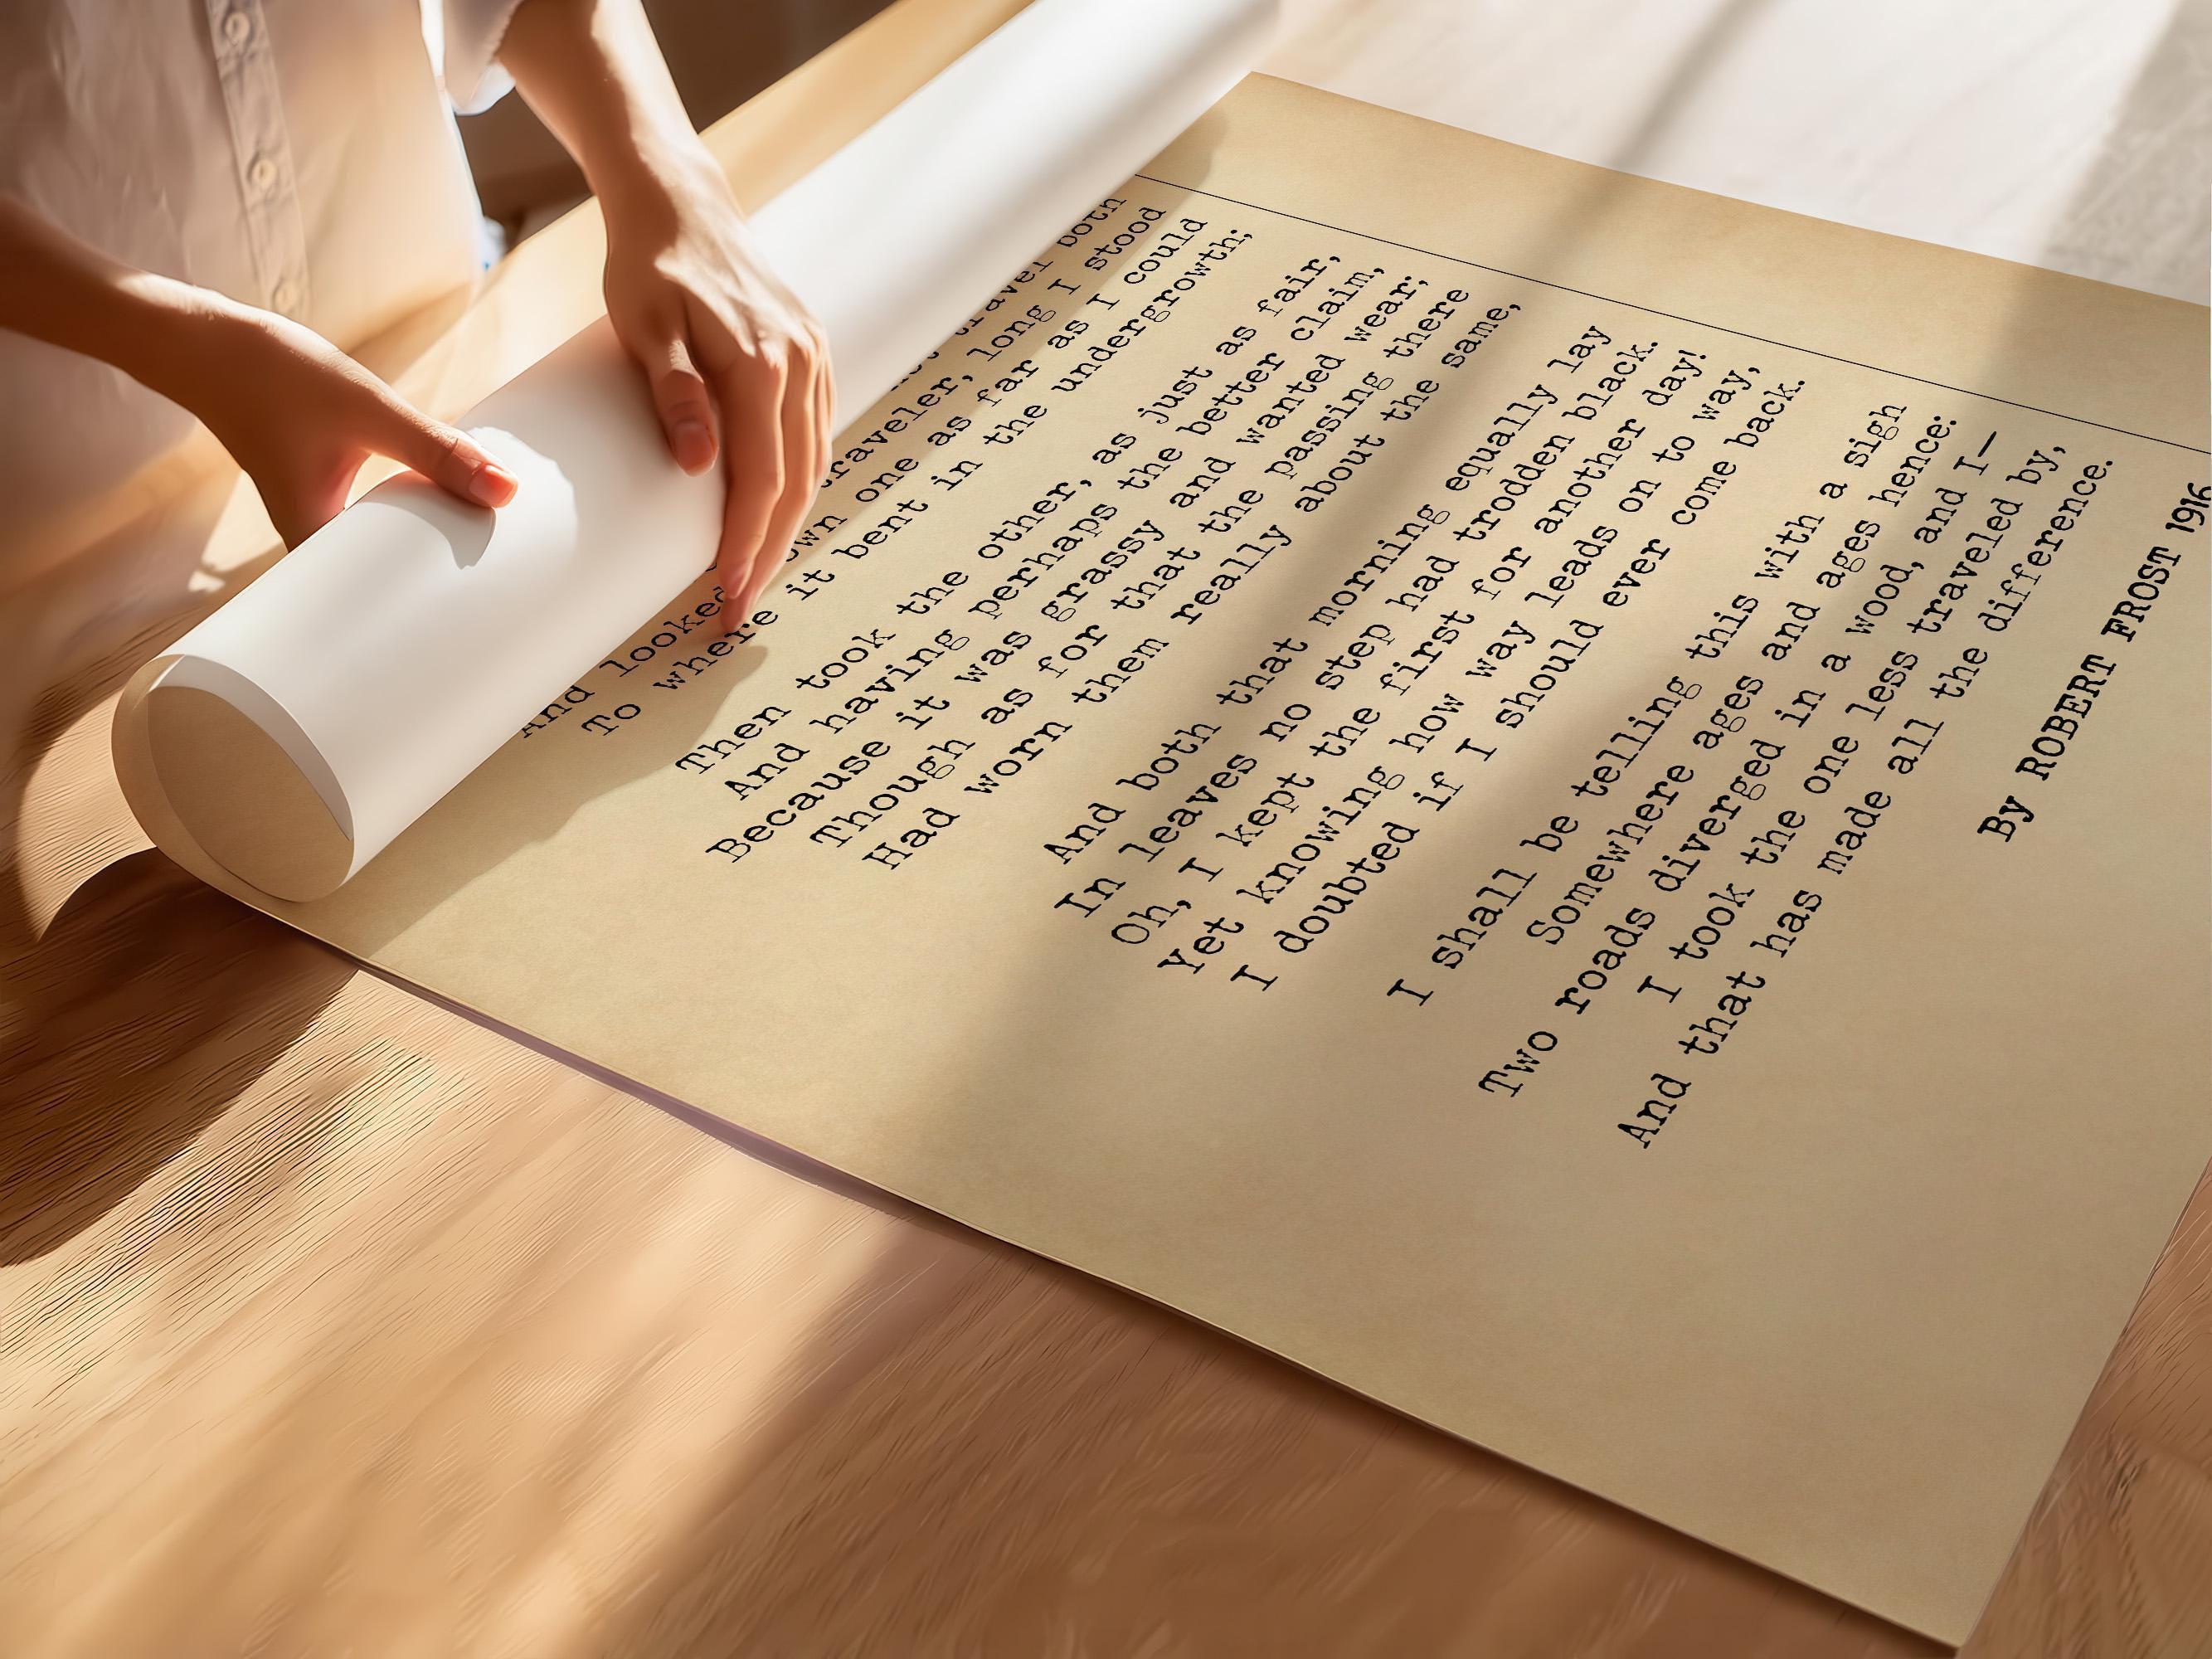 travel both
traveler, long I stood
And looked one as far as I could
To where it bent in the undergrowth;
Then took the other, as just as fair,
And having perhaps the better claim,
Because it was grassy and wanted wear;
Though as for that the passing there
Had worn them really about the same,
And both that morning equally lay
In leaves no step had trodden black.
Oh, I kept the first for another day!
Yet knowing how way leads on to way,
I doubted if I should ever come back.
I shall be telling this with a sigh
Somewhere ages and ages hence:
Two roads diverged in a wood, and I—
I took the one less traveled by,
And that has made all the difference.
By ROBERT FROST 1916